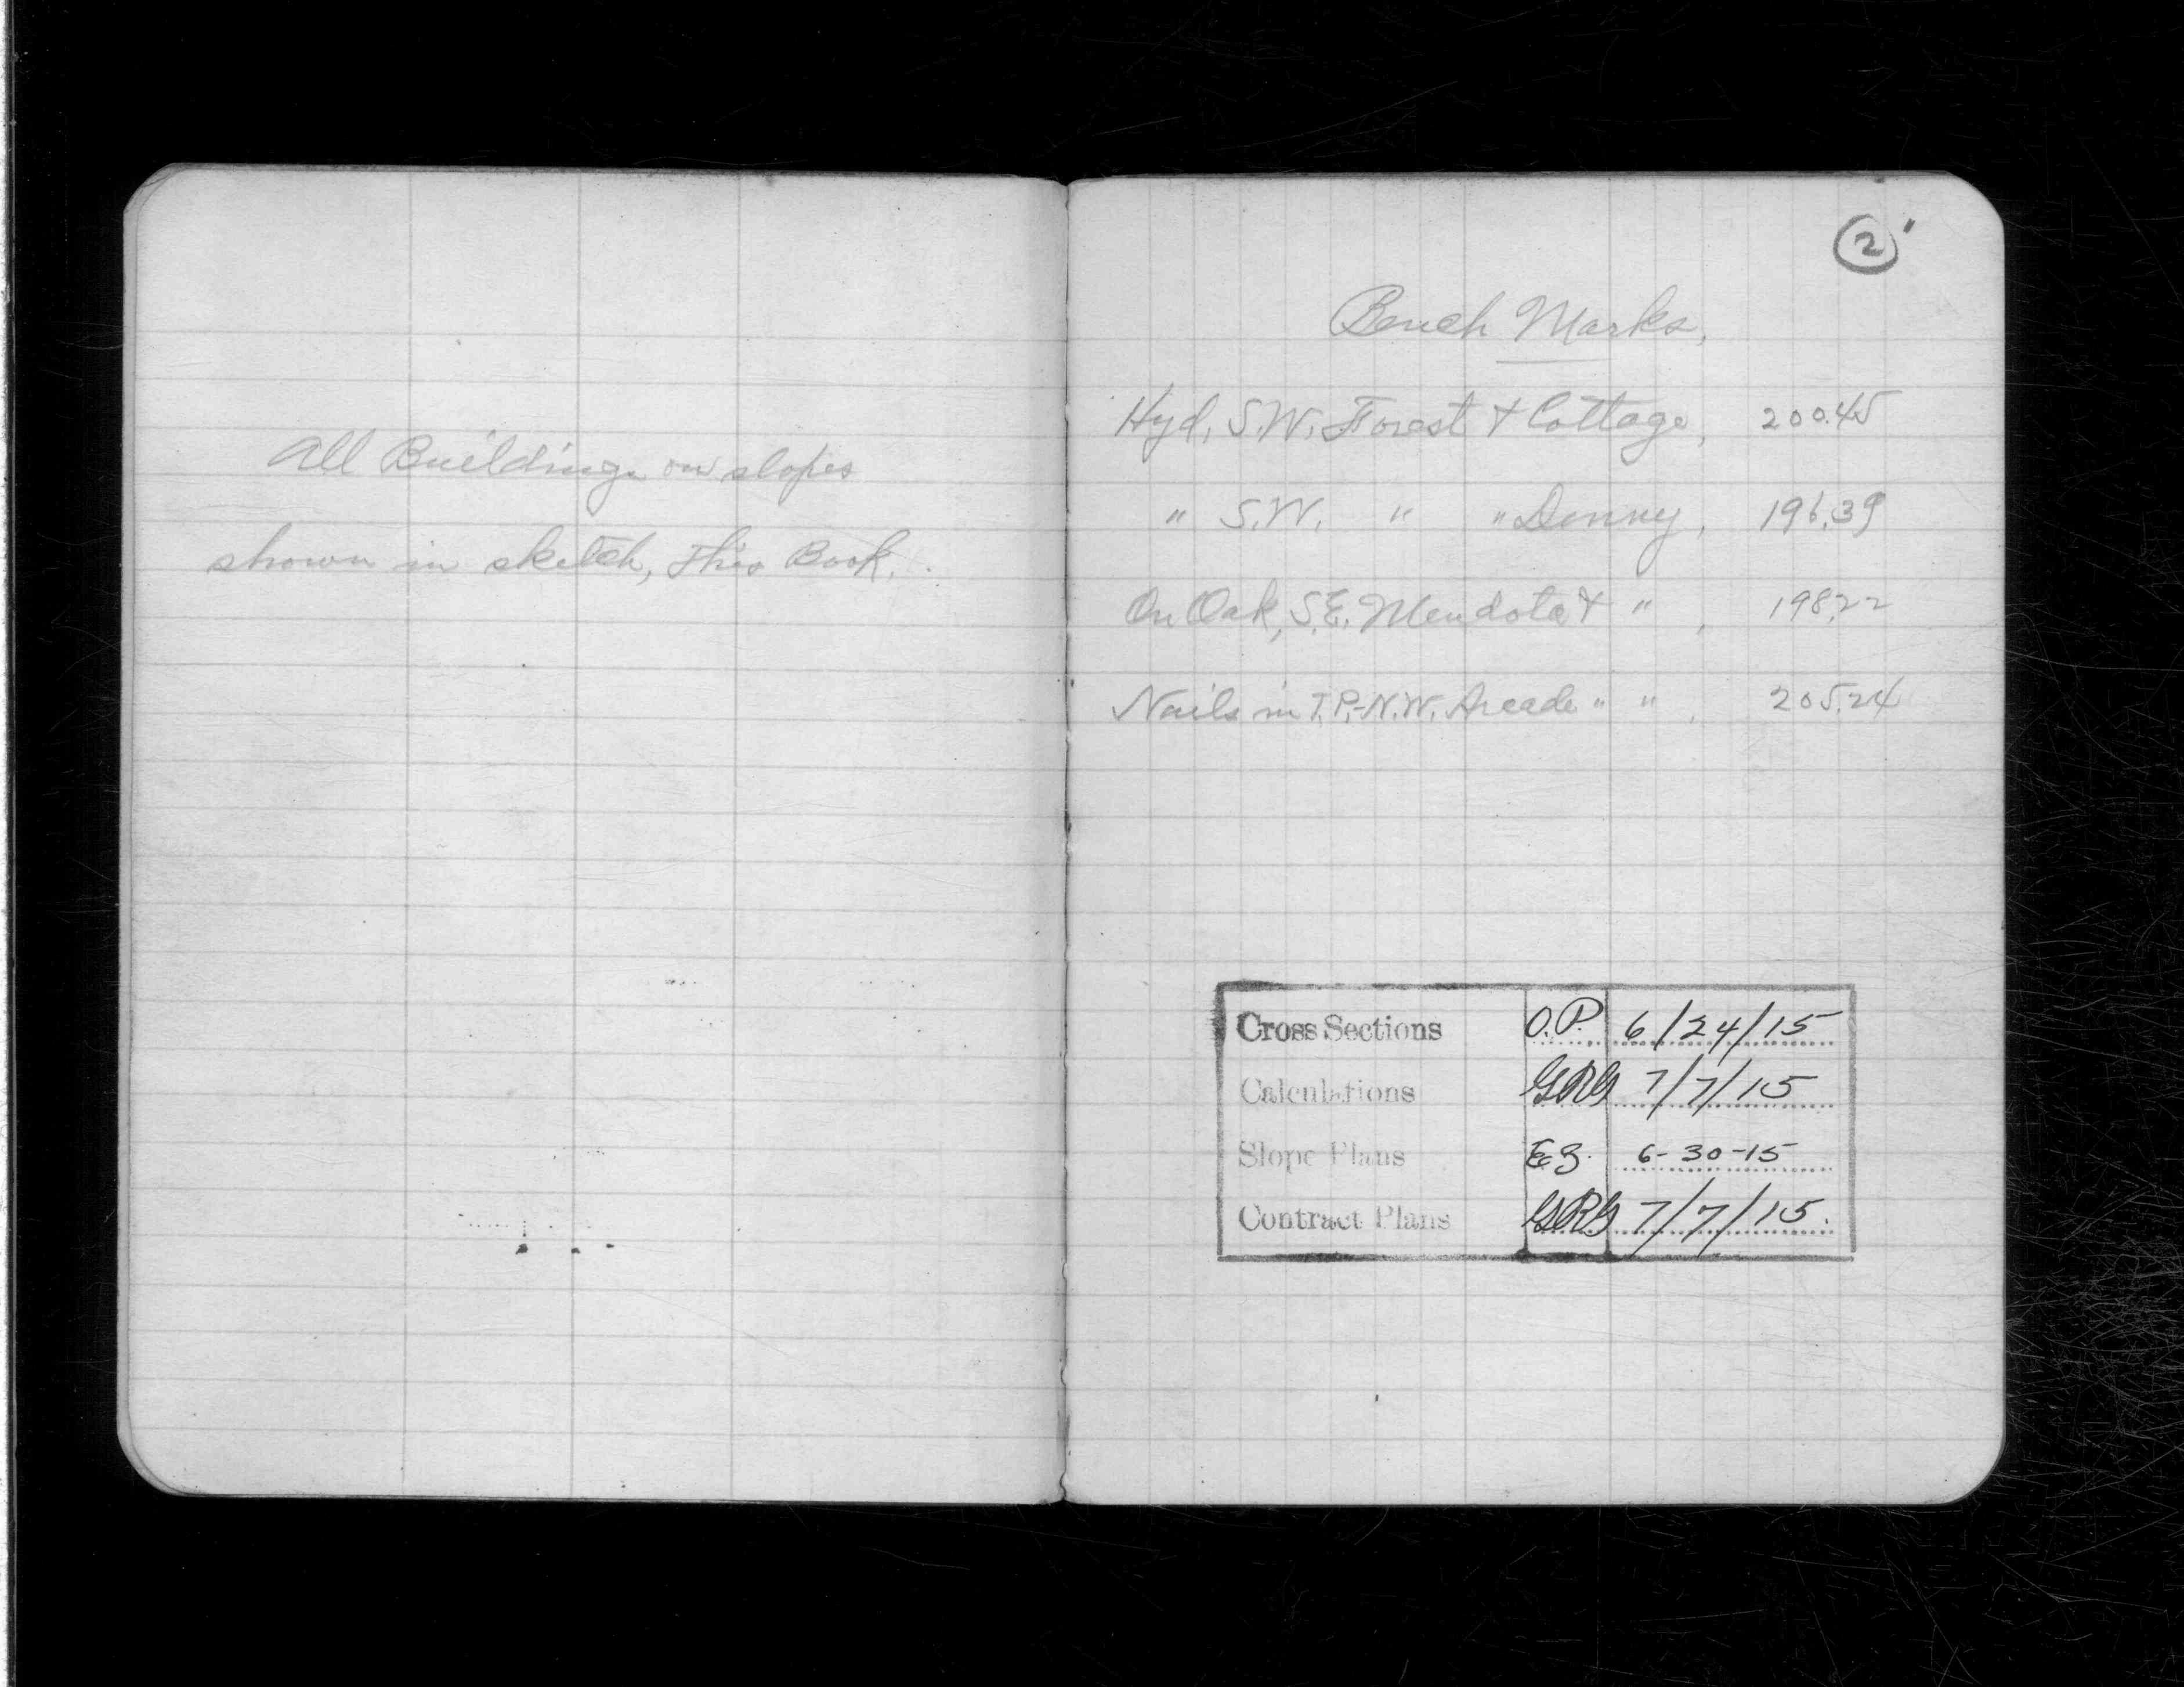 All Buildings on slopes
shown in sketch, This Book.
2
Bench Marks,
Hyd, S.W. Forest & Cottage, 200.45
" S.W. " " Denny, 196.39
On Oak, S.E. Mendota & " , 198.22
Nails in T.P.-N.W. Arcade " " , 205.24
Cross Sections O.P. 6/24/15
Calculations GRG 7/7/15
Slope Plans 6-30-15
Contract Plans GRG 7/7/15.